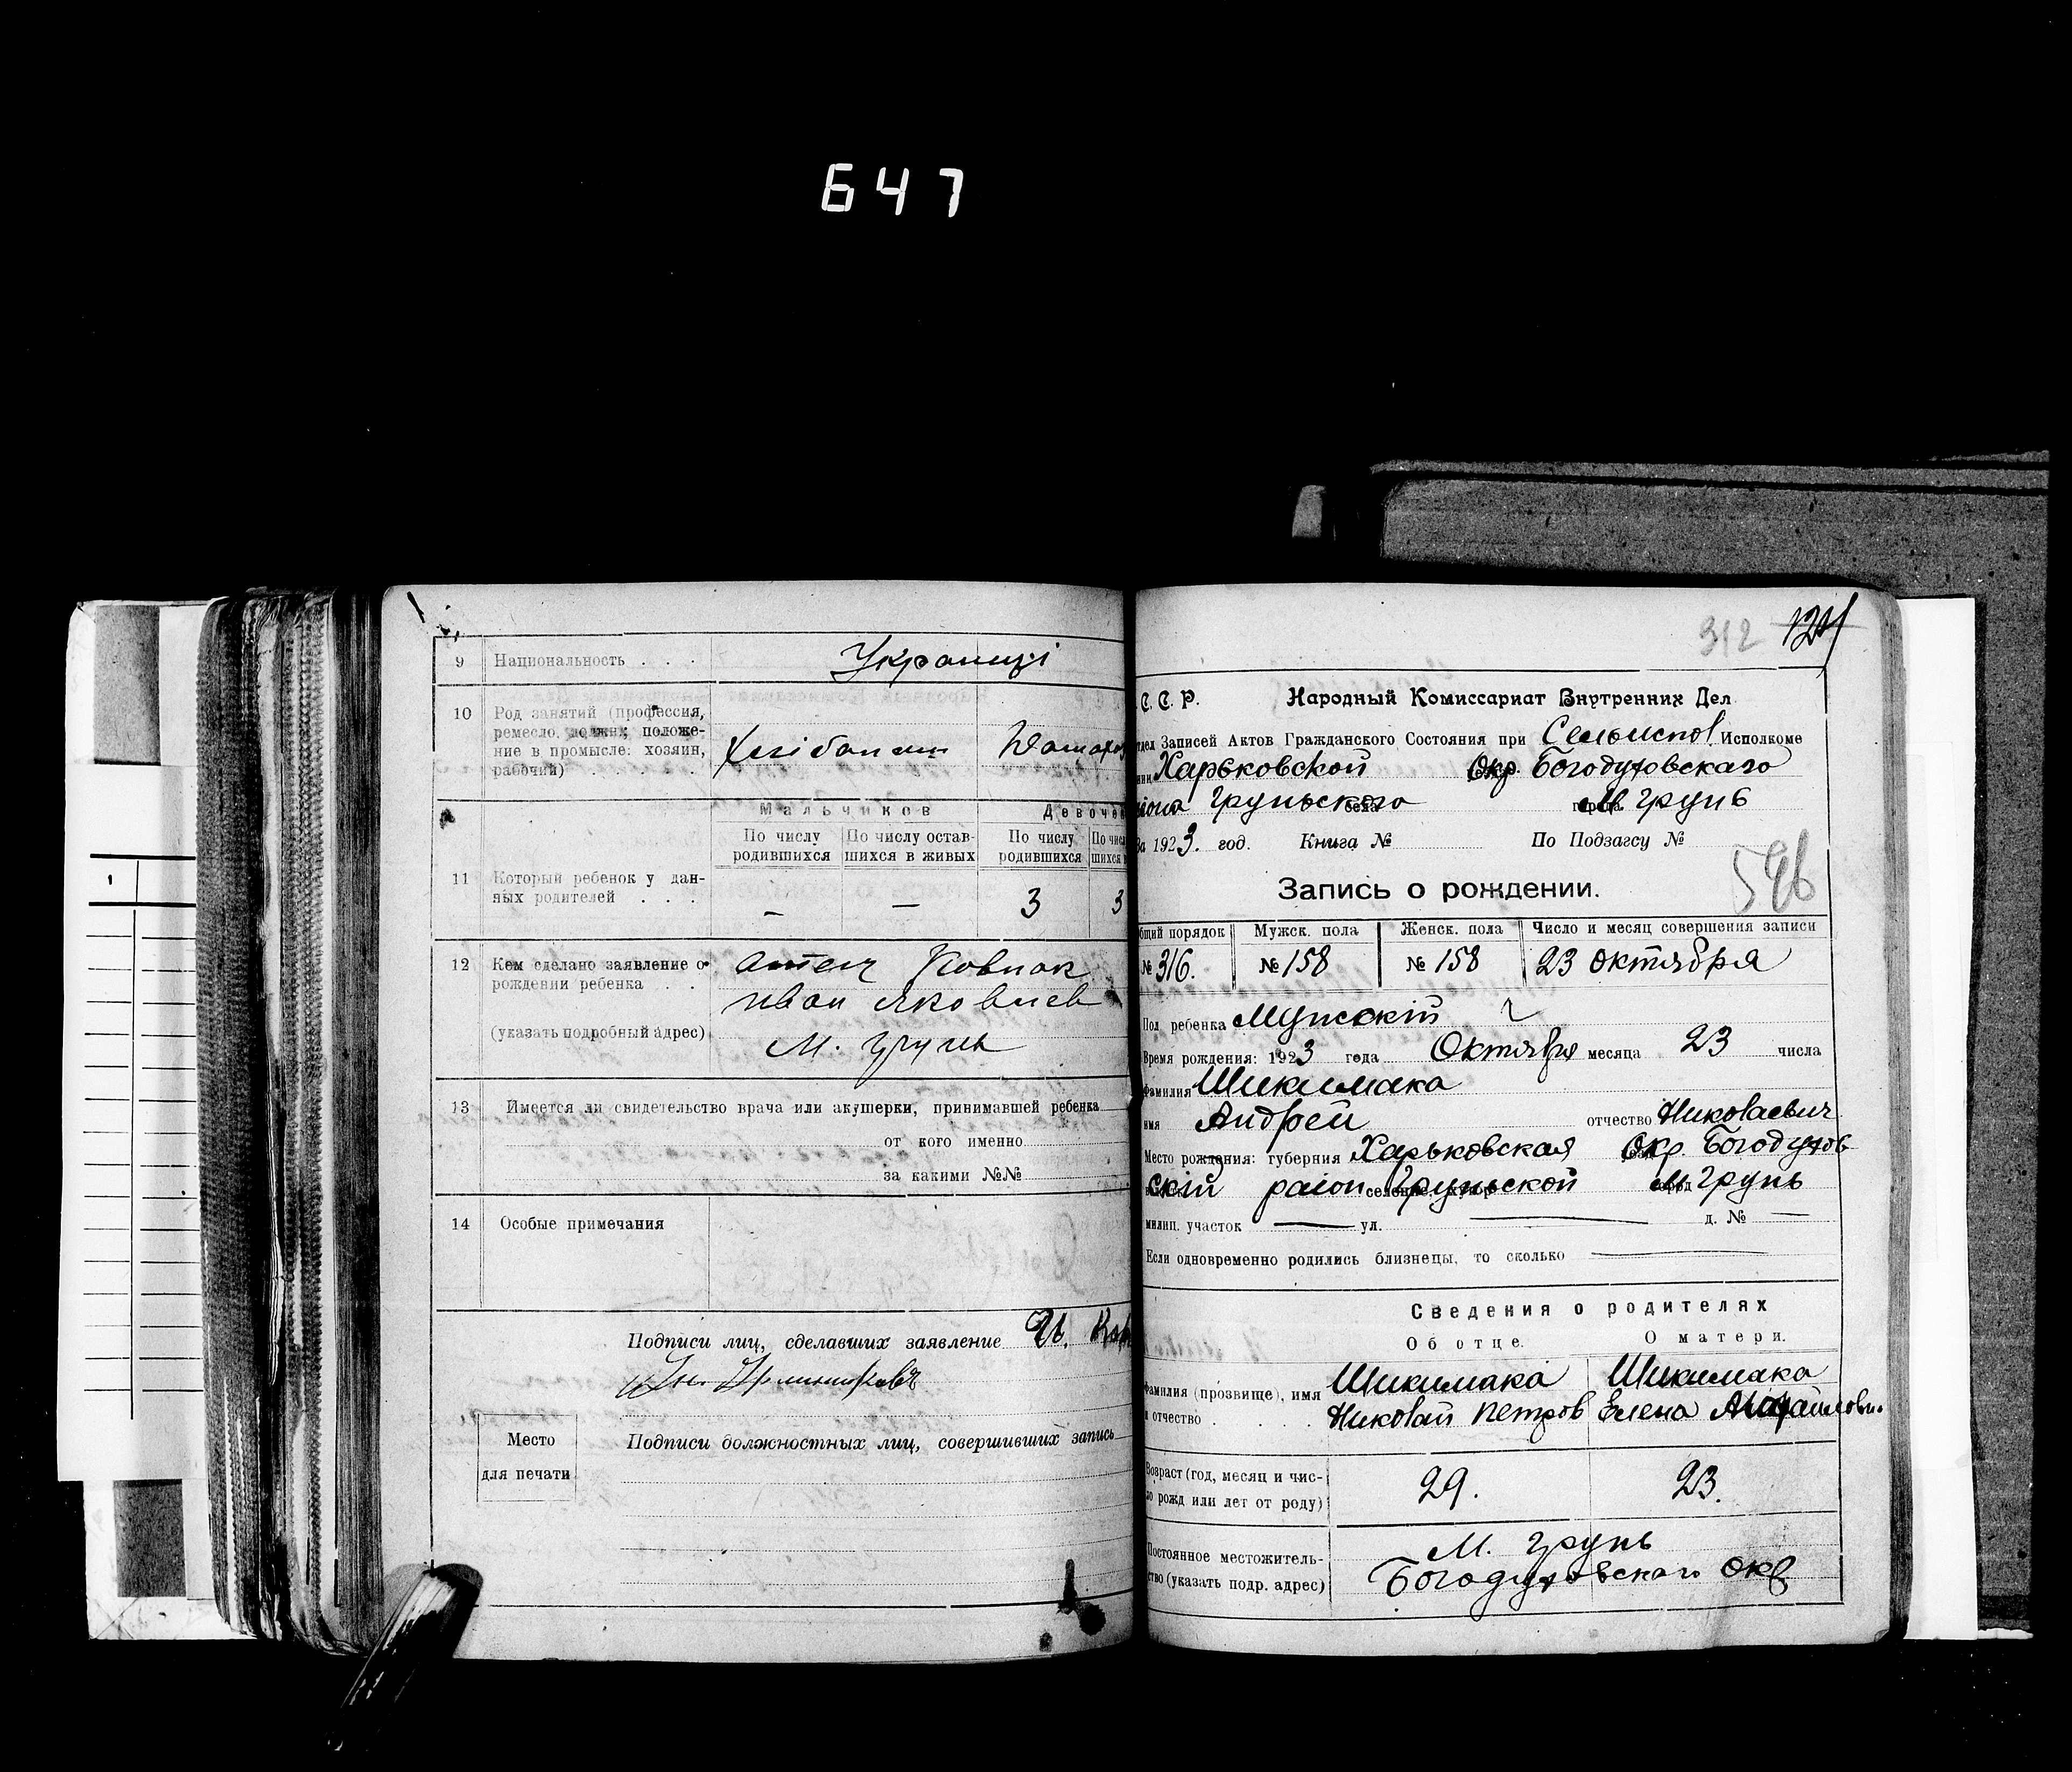 647
9 Национальность . . . Украинці
10 Род занятий (профессия,
ремесло, должн; положе-
ние в промысле: хозяин,
рабочий) . . . .
Хлібопаш
Мальчиков
По числу родившихся
По числу остав-шихся в живых
По числу родившихся
11 Который ребенок у дан-
ных родителей . . . - — 3 3
12 Кем сделано заявление о
рождении ребенка . .
(указать подробный адрес)
отец Ковпак
Иван Яковлев
М. Грунь
13 Имеется ли свидетельство врача или акушерки, принимавшей ребенка
от кого именно
за какими №№
14 Особые примечания
Подписи лиц, сделавших заявление И.
Место
для печати
Подписи должностных лиц, совершивших запись
312 121
С. С. Р. Народный Комиссариат Внутренних Дел
Записей Актов Гражданского Состояния при Сельиспол Исполкоме
Харьковской Окр. Богодуховского
Груньского М Грунь
За 1923. год. Книга № По Подзагсу №
596
Запись о рождении.
порядок Мужск. пола Женск. пола Число и месяц совершения записи
№ 316. № 158 № 158 23 октября
Пол ребенка Мужскій
Время рождения: 1923 года Октября месяца 23 числа
Фамилия Шикимака
имя Андрей отчество Николаевич
Место рождения: губерния Харьковская Окр. Богодухов
скій раіон Груньской М Грунь
милиц. участок — ул. — д. № —
Если одновременно родились близнецы, то сколько —
Сведения о родителях
Об отце. О матери.
Фамилия (прозвище), имя
и отчество . . . .
Шикимака Шикимака
Николай Петров Елена Михайловн.
Возраст (год, месяц и чис-
ло рожд или лет от роду) 29. 23.
Постоянное местожитель-
ство (указать подр. адрес)
М. Грунь
Богодуховскаго Окр